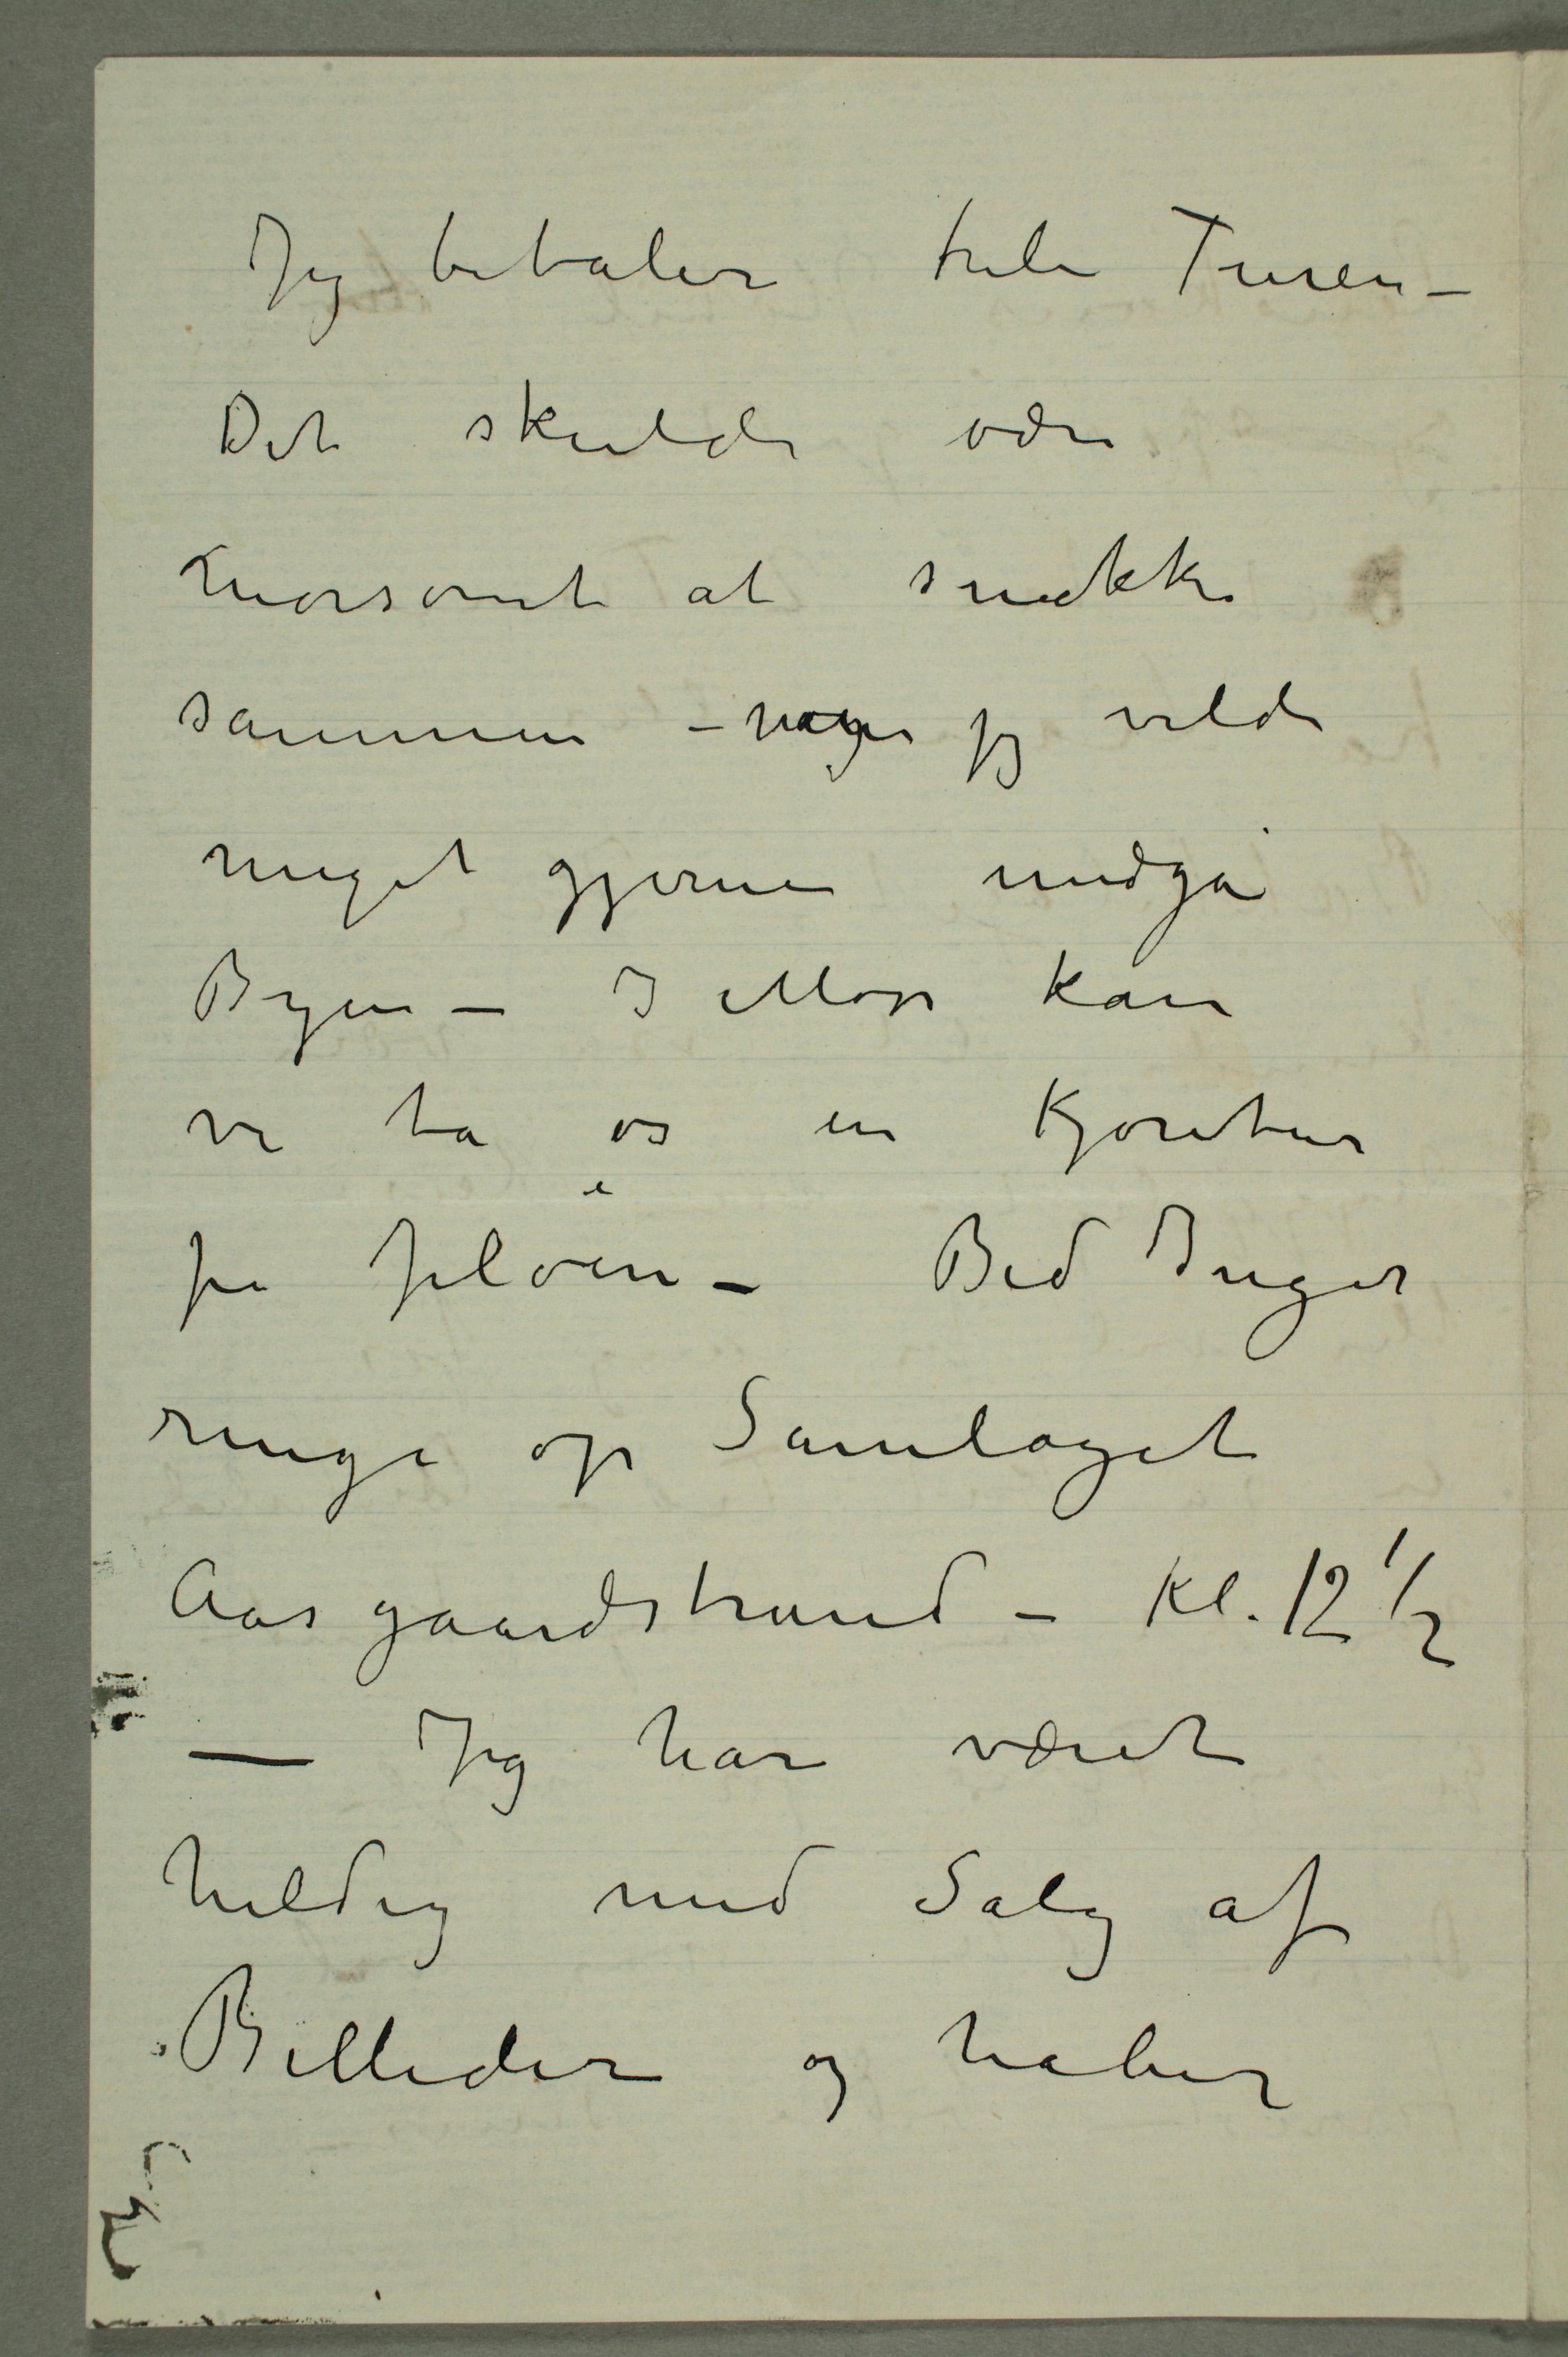 Jeg betaler hele Turen –
Det skulde være
morsomt at snakke
sammen – jeg vilde
meget gjerne undgå
Byen – I Moss kan
vi ta os en Kjøretur
på Jeløen – Bed Inger
ringe op Samlaget
Aasgaardstrand – Kl. 12 1/2
— Jeg har været
heldig med Salg af
Billeder og håber